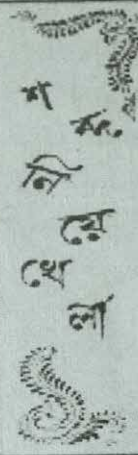 শ
ব্দ
নি
য়ে
খে
লা